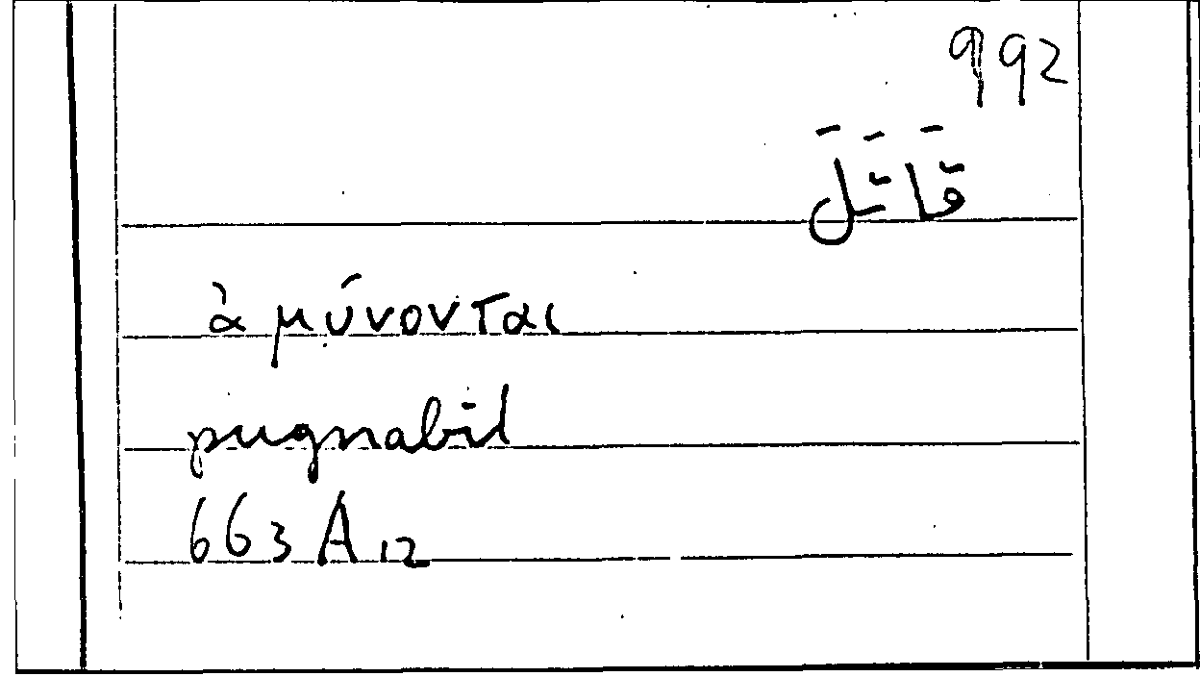 992
قَاتَلَ
ἀμύνονται
pugnabit
663 A 12